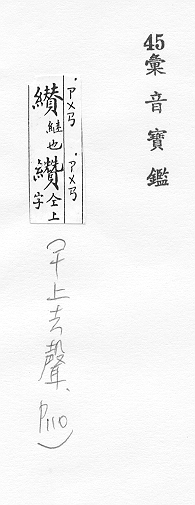 45彙音寶鑑
˙ㄗㄨㄢ ˙ㄗㄨㄢ
纉継也 纘仝上字
上去聲、P110)